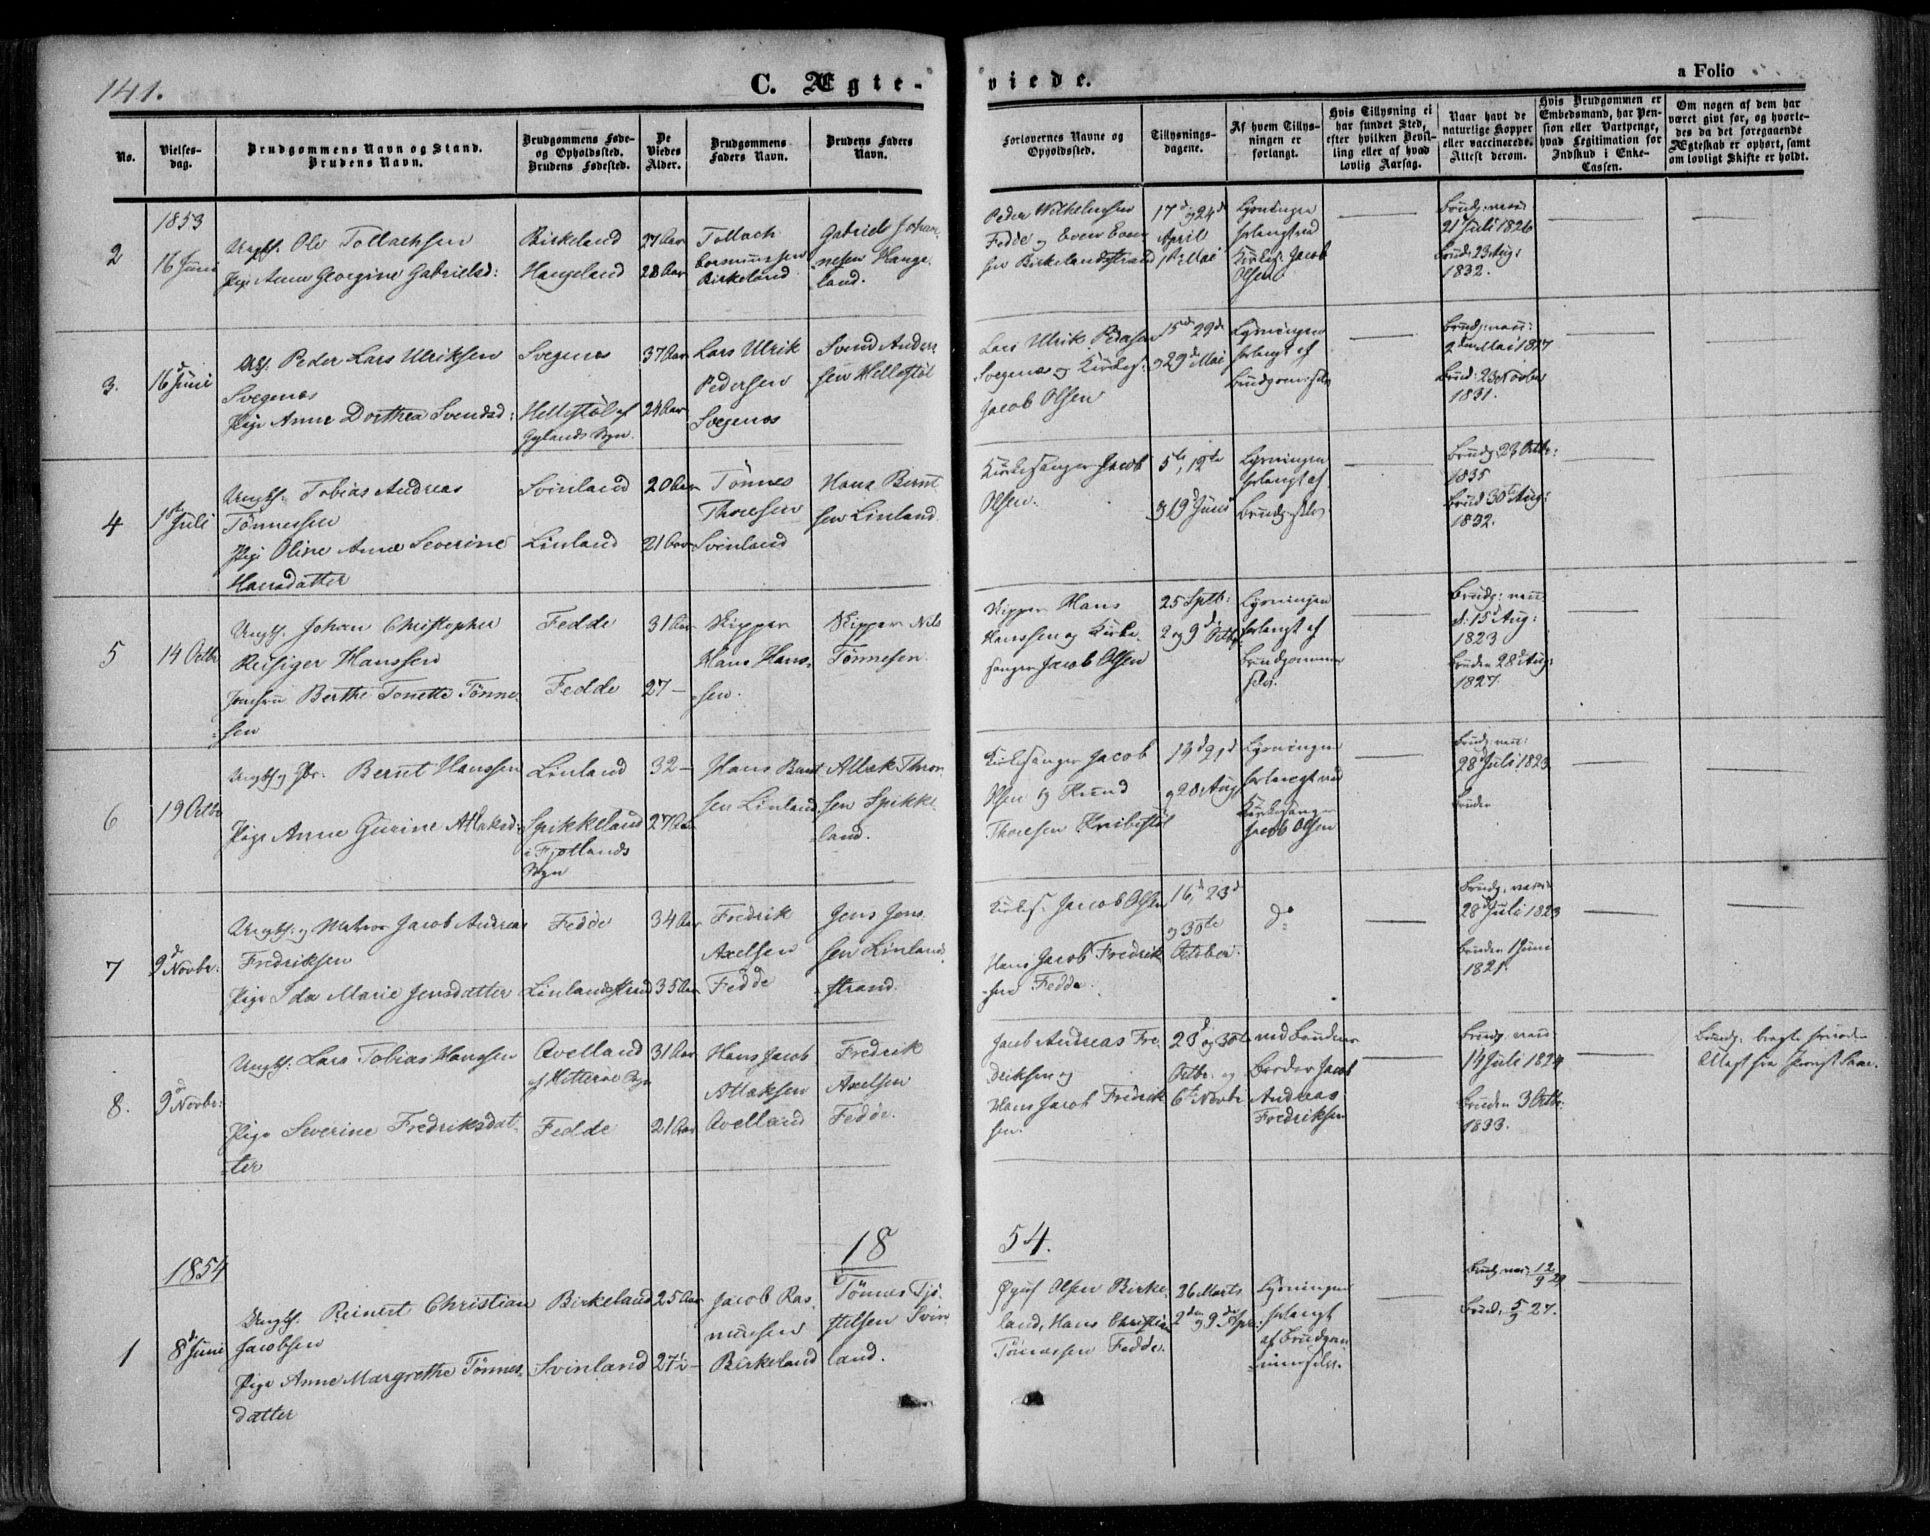 141.
C. Ægteviede.
a Folio
No.
Vielsesdag.
Brudgommens Navn og Stand. Brudens Navn.
Brudgommens Føde- og Opholdssted. Brudens Fødested.
De Viedes Alder.
Brudgommens Faders Navn.
Brudens Faders Navn.
Forlovernes Navne og Opholdssted.
Tillysningsdagene.
Af hvem Tillysningen er forlangt.
Hvis Tillysning ei har fundet Sted, efter hvilken Bevilling eller af hvad lovlig Aarsag.
Naar havt de naturlige Kopper eller vaccinerede. Attest derom.
Hvis Brudgommen er Embedsmand, har Pension eller Vartpenge, hvad Legitimation for Indskud i Enke-Cassen.
Om nogen af dem har været givt før, og hvorledes da det foregaaende Ægteskab er ophørt, samt om lovligt Skifte er holdt.
1853
2
16 Juni
Ungk. Ole Tollachsen
Pige Anne Georgine Gabrielsd:
Birkeland
Hangeland
27 Aar
28 Aar
Tollach
Birkeland
Gabriel Johannesen Hangeland.
Peder Wilhelmsen
Fedde og Even Evensen Birkelandsstrand
17d og 24d
April
1st Mai
Lysningen
forlangt ved
Kirkes: Jacob
Olsen
Brudg: vacc:
21 Juli 1826
Brud: 23 Aug:
1832.
3.
16d Juni
Peder Lars Ulriksen
Svegenes
Pige Anne Dorthea Svendsd:
Svegenes
Hellestøl af
Gylands Sogn.
37 Aar
24 Aar
Lars Ulrik
Pedersen
Svegenes
Svend Andersen Hellestøl
Lars Ulrik Pedersen
Svegenes og Kirkes:
Jacob Olsen
15d 22d
og 29d Mai
Lysningen
forlangt af
Brudgom. selv
Brudg: vacc:
2den Mai 1817
Brud: 23 Novbr
1831.
4
1st Juli
Ungk: Tobias Andreas
Tønnessen
Pige Oline Anne Severine
Hansdatter
Svinland
Linland
20 Aar
21 Aar
Tønnes
Thoresen
Svinland
Hans Berntsen Linland
Kirkesanger Jacob
Olsen.
5te, 12te
og 19d Juni
Lysningen
forlangt af
Brudg. selv
Brudg: 23 Octbr:
1835
Brud 30t Aug:
1832.
5
14 Octbr
Ungk. Johan Christopher
Reisiger Hanssen
Jomfru Berthe Tonette Tønnesen
Fedde
Fedde
31 Aar
27 —
Skipper
Hans Hanssen.
Skipper Nils
Tønnesen.
Skipper Hans
Hanssen og Kirkesanger Jacob Olsen
25 Sptb:
2 og 9d Octbr
Lysningen
forlangt af
Brudgommen
selv.
Brudg: vacc:
d: 15d Aug:
1823
Bruden 28d Aug:
1827.
6
19 Octbr
Ungk og Gbr. Bernt Hanssen
Pige Anne Gurine Atlaksd:
Linland
Spikkeland
i Fjotlands
Sogn
32 —
27 Aar
Hans Berntsen Linland
Atlak Thorsen Spikkeland.
Kirkesanger Jacob
Olsen og
Thoresen Knibestøl
14d 21d
og 28 Aug
Lysningen
forlangt ved
Kirkesanger
Jacob Olsen
Brudg. vacc:
28d Juli 1823
Bruden
7
9d Novbr:
Ungk: og Matros Jacob Andreas
Fredriksen
Pige Ida Marie Jensdatter
Fedde
Linlandsstrand
34 Aar
35 Aar
Fredrik
Axelsen
Fedde
Jens Jenssen Linlandsstrand.
Kirkes: Jacob Olsen
Hans Jacob Fredriksen Fedde.
16d, 23d
og 30te
October.
do
Brudg. vacc:
28d Juli 1823
Bruden 1 Juni
1821.
8.
9d Novbr:
Ungk: Lars Tobias Hanssen
Pige Severine Fredriksdatter
Avelland
af Hitterøe Sogn
Fedde
31 Aar
21 Aar
Hans Jacob
Atlaksen
Avelland
Fredrik
Axelsen
Fedde.
Jacob Andreas Fredriksen og
Hans Jacob Fredriksen.
23d og 30te
Octbr. og
6te Novbr
ved Brudens
Broder Jacob
Andreas
Fredriksen
Brudg. vacc:
14 Juli 1824
Bruden 3 Octbr:
1833.
Attest fra
18 54.
1854
1
8d Juni
Ungk. Reinert Christian
Jacobsen
Pige Anne Margrethe Tønnesdatter
Birkeland
Svinland
25 Aar
27½ —
Jacob Rasmusen
Birkeland
Tønnes Tjøstelsen Svinland.
Olsen Birkeland, Hans Christian
Tønnessen Fedde.
26 Marts
2den og 9de Apr:
Lysningen
forlangt
af Brudgommen selv.
Brudg. vac: 12/9 29
Brud, 5/9 27.